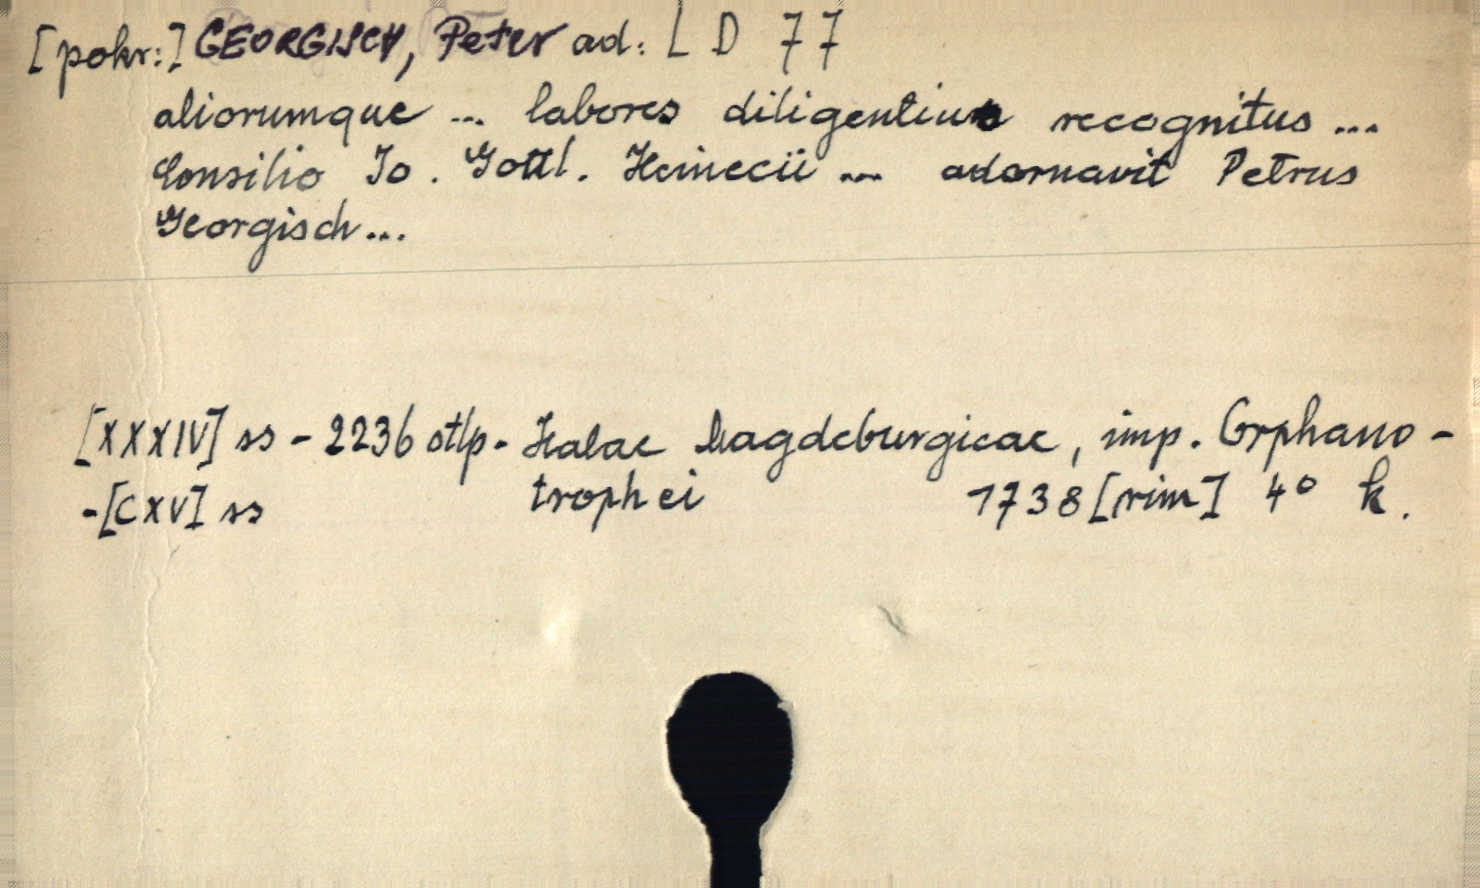 [pokr:] GEORGISCH, Peter ad: L D 77
aliorumque ... labores diligentius recognitus ...
Consilio Io. Gottl. Heinecii ... adornavit Petrus
Georgisch...
[XXXIV] ss - 2236 stlp - Halae Magdeburgicae, imp. Orphano-
-[CXV] ss trophei 1738 [rim] 4° k.